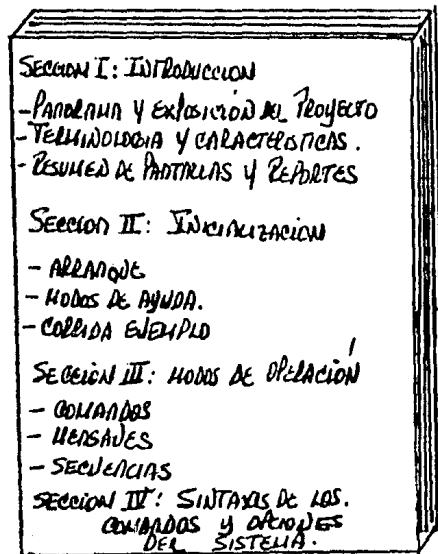 SECCION I: INTRODUCCION
- PANORAMA Y EXPOSICIÓN DEL PROYECTO
- TERMINOLOGIA Y CARACTERISTICAS.
- RESUMEN DE PANTALLAS Y REPORTES
SECCION II: INICIALIZACION
- ARRANQUE
- MODOS DE AYUDA.
- CORRIDA EJEMPLO
SECCIÓN III: MODOS DE OPERACIÓN
- COMANDOS
- MENSAJES
- SECUENCIAS
SECCION IV: SINTAXIS DE LOS.
COMANDOS Y OPCIONES
DEL SISTEMA.